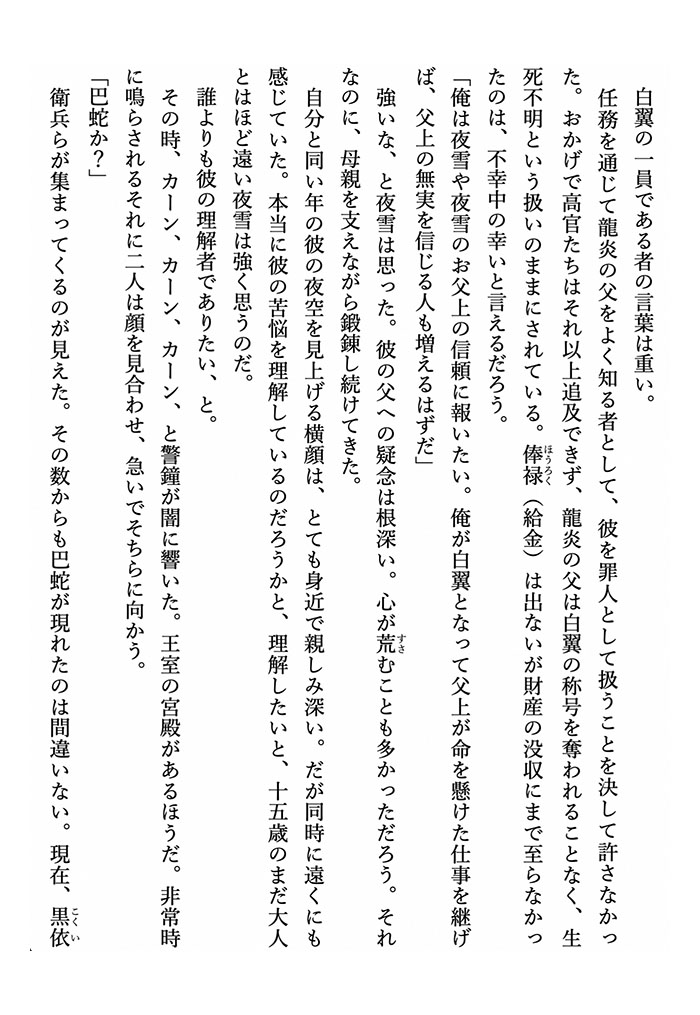 白翼の一員である者の言葉は重い。
任務を通じて龍炎の父をよく知る者として、彼を罪人として扱うことを決して許さなかっ
た。おかげで高官たちはそれ以上追及できず、龍炎の父は白翼の称号を奪われることなく、生
死不明という扱いのままにされている。俸禄（給金）は出ないが財産の没収にまで至らなかっ
たのは、不幸中の幸いと言えるだろう。
「俺は夜雪や夜雪のお父上の信頼に報いたい。俺が白翼となって父上が命を懸けた仕事を継げ
ば、父上の無実を信じる人も増えるはずだ」
強いな、と夜雪は思った。彼の父への疑念は根深い。心が荒むことも多かっただろう。それ
なのに、母親を支えながら鍛錬し続けてきた。
自分と同い年の彼の夜空を見上げる横顔は、とても身近で親しみ深い。だが同時に遠くにも
感じていた。本当に彼の苦悩を理解しているのだろうかと、理解したいと、十五歳のまだ大人
とはほど遠い夜雪は強く思うのだ。
誰よりも彼の理解者でありたい、と。
その時、カーン、カーン、カーン、と警鐘が闇に響いた。王室の宮殿があるほうだ。非常時
に鳴らされるそれに二人は顔を見合わせ、急いでそちらに向かう。
「巴蛇か？」
衛兵らが集まってくるのが見えた。その数からも巴蛇が現れたのは間違いない。現在、黒依
ほうろく
すさ
こくい